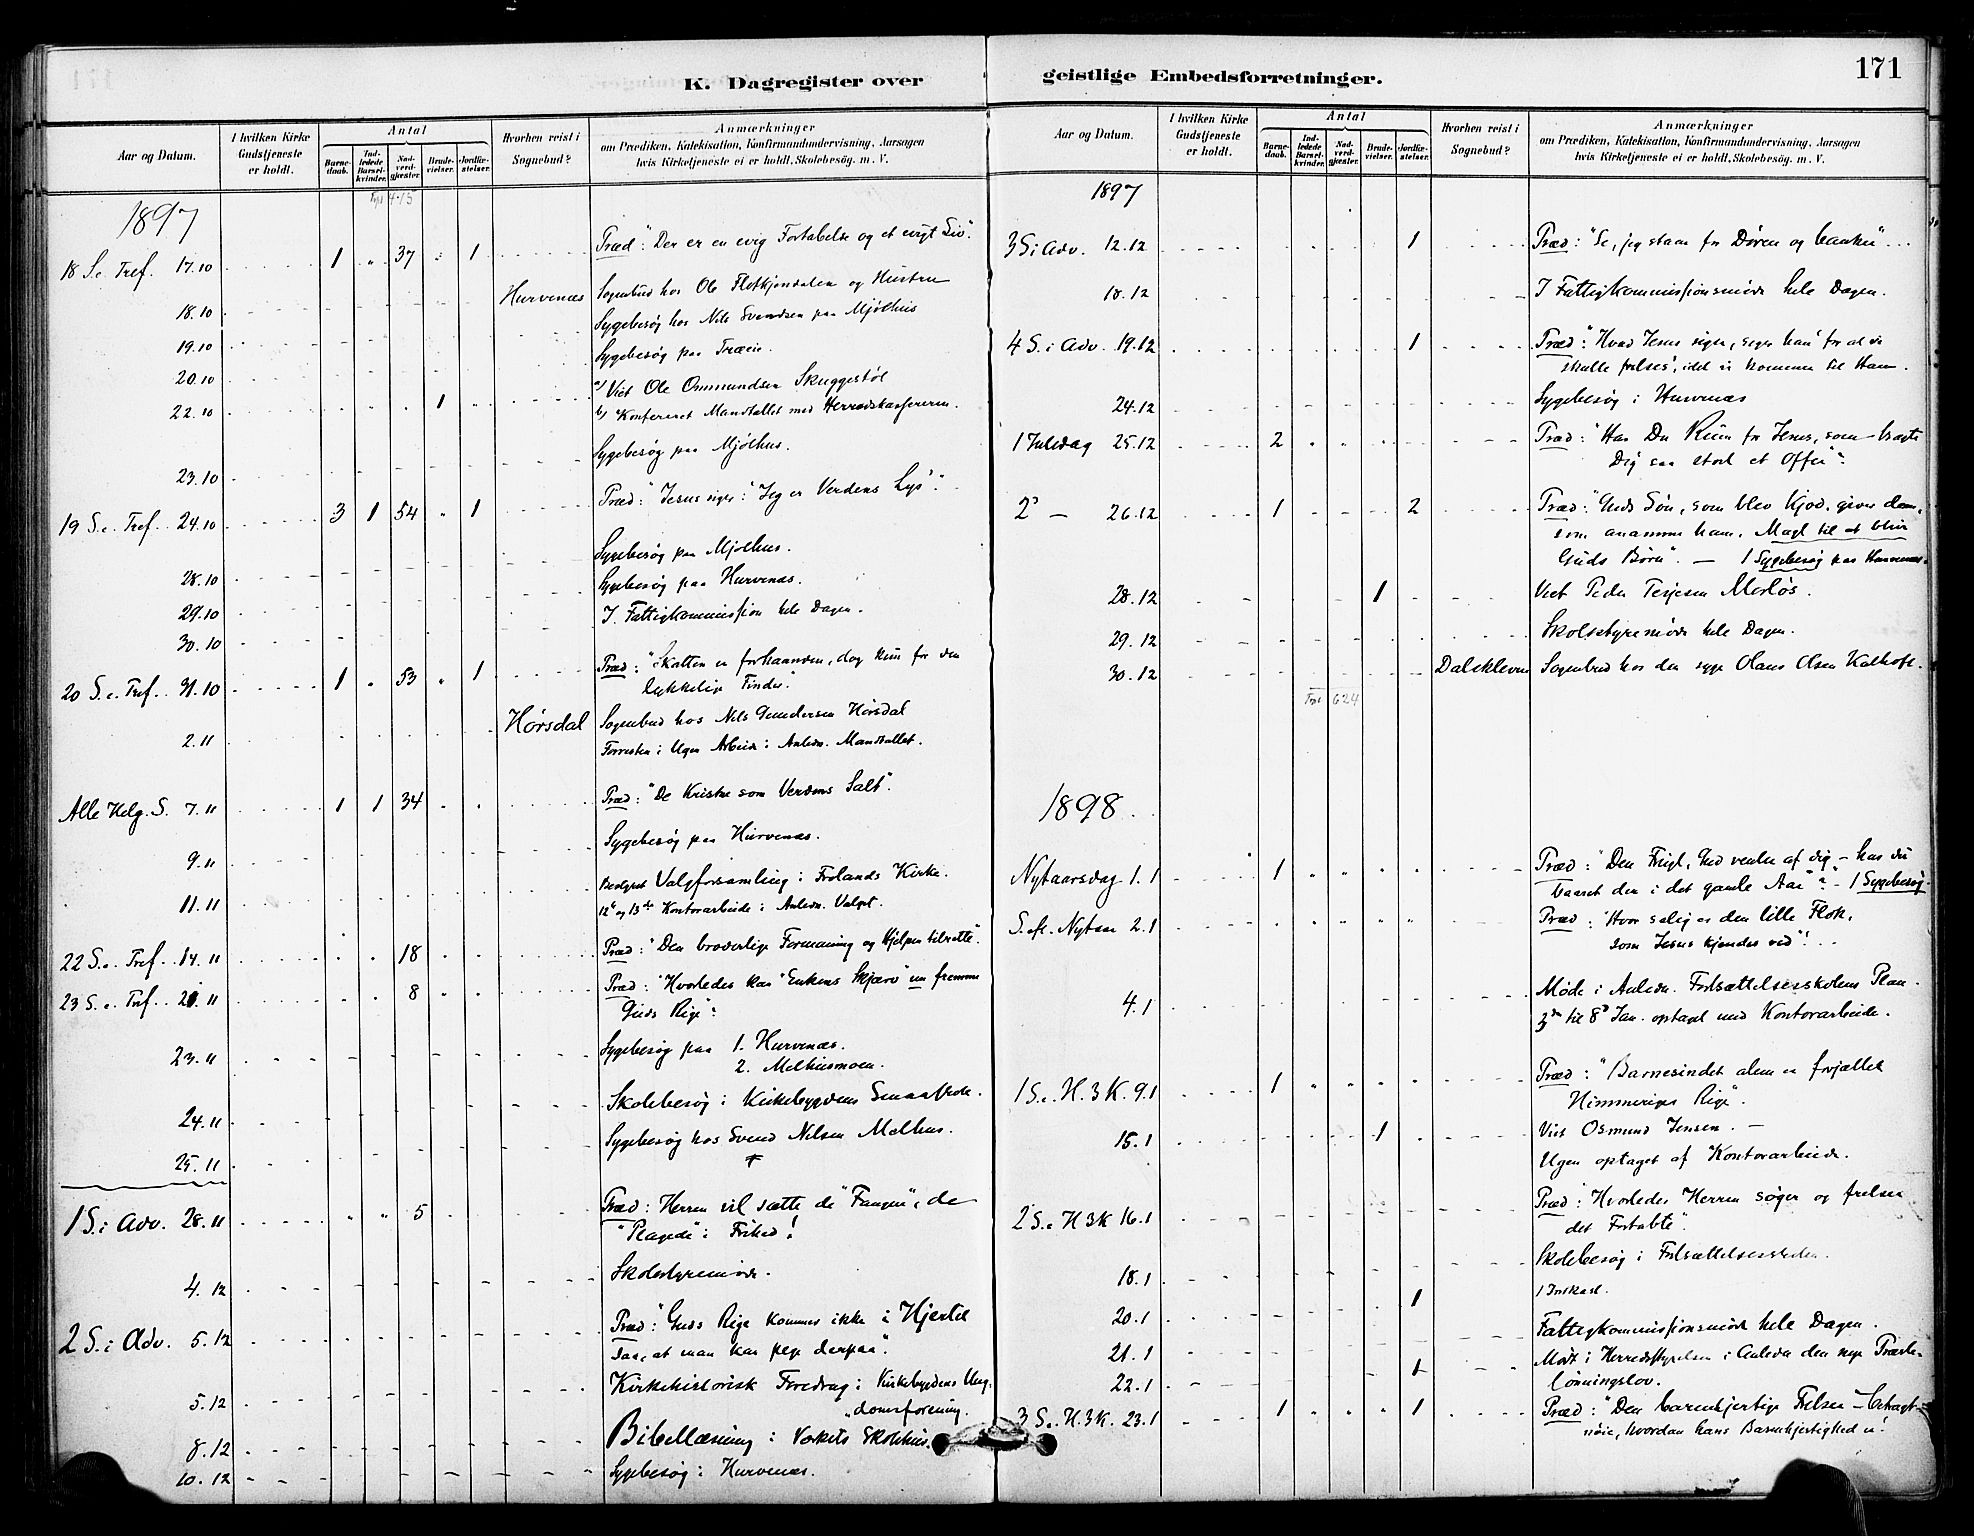 K. Dagregister over
Aar og Datum.
I hvilken Kirke Gudstjeneste er holdt.
Antal
Barne-daab.
Ind-ledede Barsel-kvinder.
Nad-verd-gjæster.
Brude-vielser.
Jordfæ-stelser.
Hvorhen reist i Sognebud?
Anmærkninger
om Prædiken, Katekisation, Konfirmandundervisning, Aarsagen
hvis Kirketjeneste ei er holdt, Skolebesög. m. V.
1897
18 S. e. Tref. 17.10 1 " 37 " 1 Præd: "Der er en evig Fortabelse og et evigt Liv".
18.10 Hurvenæs Sognebud hos Ole og Hustru
Sygebesøg hos Nils Svendsen paa Mjølhus
19.10 Sygebesøg paa Træen.
20.10
22.10 1 a) Viet Ole Ommundsen Skuggestøl
b) Konfereret Mandtallet med Herredskassereren.
Sygebesøg paa Mjølhus.
23.10
19 S. e. Tref. 24.10 3 1 54 " 1 Præd: "Jesus siger: "Jeg er Verdens Lys".
Sygebesøg paa Mjølhus.
28.10 Sygebesøg paa Hurvenæs.
29.10 I Fattigkommission hele Dagen.
30.10
20 S. e. Tref. 31.10 1 " 53 " 1 Præd: "Skatten er forhaanden, dog kun for den
lykkelige Finder".
2.11 Hørsdal Sognebud hos Nils Gundersen Hørsdal
Forresten i Ugen Arbeide i Anledn. Mandtallet.
Alle Helg. S. 7.11 1 1 34 " " Præd: "De Kristne som Verdens Salt".
Sygebesøg paa Hurvenæs.
9.11
11.11 Valgforsamling i Frolands Kirke.
12te og 13de Kontorarbeide i Anledn. Valget.
22 S. e. Tref. 14.11 " " 18 " " Præd: "Den broderlige Formaning og Hjelpen tilrette".
23 S. e. Tref. 21.11 " " 8 " " Præd: "Hvorledes kan "Enkens Skjærv" fremme
Guds Rige".
23.11 Sygebesøg paa 1. Hurvenæs.
2. Melhusmoen.
24.11 Skolebesøg i Kirkebygdens
Sygebesøg hos Svend Nilsen Melhus.
25.11
1 S. i Adv. 28.11 " " 5 Præd: Herren vil sætte de "Fangne", de
"Plagede" i Frihed!
4.12 Skolestyremøde.
2 S. i Adv. 5.12 Præd: "Guds Rige kommer ikke i Hjertet
saa, at man kan pege derpaa".
5.12 Kirkehistorisk Foredrag i Kirkebygdens Ung-
domsforening.
8.12 Bibellæsning i Værkets Skolehus.
10.12 Sygebesøg i Hurvenæs.
geistlige Embedsforretninger.
171
Aar og Datum.
I hvilken Kirke Gudstjeneste er holdt.
Antal
Barne-daab.
Ind-ledede Barsel-kvinder.
Nad-verd-gjæster.
Brude-vielser.
Jordfæ-stelser.
Hvorhen reist i Sognebud?
Anmærkninger
om Prædiken, Katekisation, Konfirmandundervisning, Aarsagen
hvis Kirketjeneste ei er holdt, Skolebesög. m. V.
1897
3 S. i Adv. 12.12 1 Præd: "Se, jeg staar for Døren og banker"...
18.12 I Fattigkommissionsmøde hele Dagen.
4 S. i Adv. 19.12 1 Præd: "Hvad Jesus siger, siger han for at vi
skulle frelses", idet vi kommer til Ham.
24.12 Sygebesøg i Hurvenæs
1 Juledag 25.12 2 Præd: "Har Du Rum for Jesus, som bragte
Dig saa stort et Offer".
2 – 26.12 1 2 Præd: "Guds Søn, som blev Kjød, giver dem,
som anammer ham, Magt til at blive
Guds Børn". – 1 Sygebesøg paa Hurvenæs.
28.12 1 Viet Peder Terjesen
29.12 Skolestyremøde hele Dagen.
30.12 Dalskleven Sognebud hos den syge Olaus Olsen
624
1898
Nytaarsdag 1.1 1 " " " " Præd: "Den Frugt, Gud venter af dig – har du
baaret den i det gamle Aar"? – 1 Sygebesøg.
S. ef. Nytaar 2.1 Præd: "Hvor salig er den lille Flok,
som Jesus kjendes ved"!
4.1 Møde i Anledn. Fortsættelsesskolens Plan.
3de til 8de Jan. optaget med Kontorarbeide.
1 S. e. H. 3 K. 9.1 1 " " " " Præd: "Barnesindet alene er forjættet
Himmeriges Rige".
15.1 1 Viet Osmund Jensen. –
Ugen optaget af Kontorarbeide.
2 S. e. H 3 K 16.1 Præd: "Hvorledes Herren søger og frelser
det Fortabte".
18.1 Skolebesøg i Fortsættelsesskolen.
20.1 1 1 Jordkast.
21.1 Fattigkommissionsmøde hele Dagen.
22.1 1 Møde i Herredsstyrelsen i Anledn. den nye Præste-
lønningslov.
3 S. e. H. 3 K. 23.1 1 " " " 1 Præd: "Den barmhjertige Frelser – betragt
nøie, hvordan hans Barmhjertighed er!